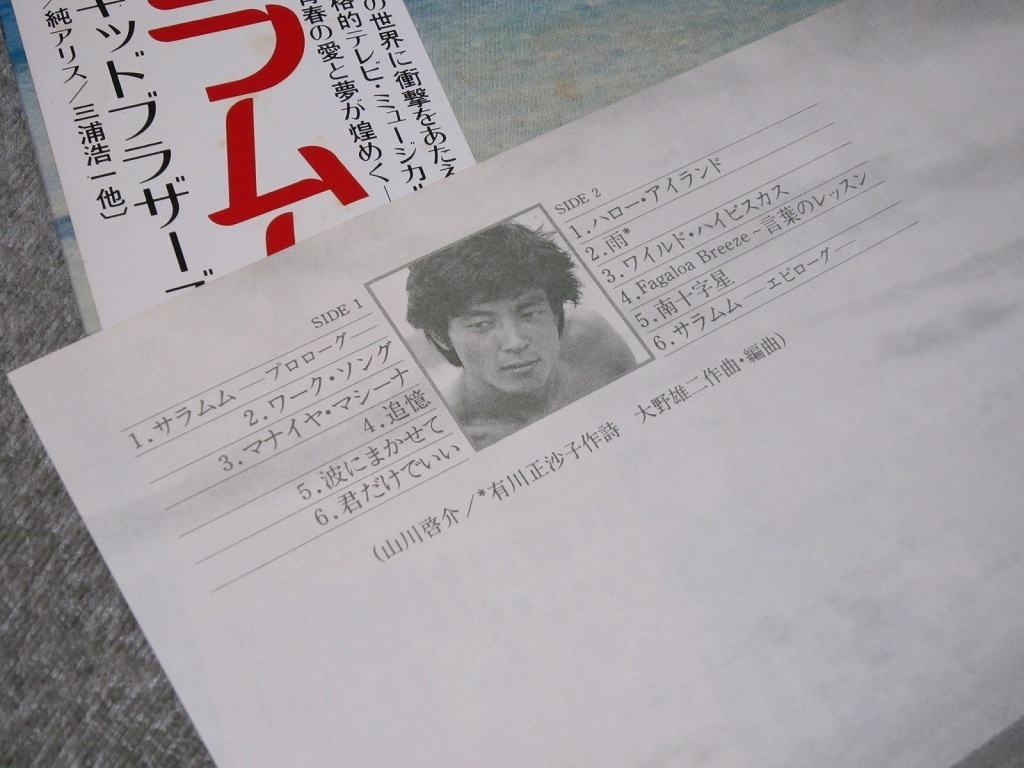 の世界に衝撃をあたえ
格的テレビ・ミュージカ
青春の愛と夢が煌めく—
ラム
キッドブラザー
/純アリス/三浦浩一他〕
SIDE 1
1.サラムム—プロローグ—
2.ワーク・ソング
3.マナイヤ・マシーナ
4.追憶
5.波にまかせて
6.君だけでいい
SIDE 2
1.ハロー・アイランド
2.雨*
3.ワイルド・ハイビスカス
4.Fagaloa Breeze–言葉のレッスン
5.南十字星
6.サラムム—エピローグ—
(山川啓介/*有川正沙子作詩 大野雄二作曲・編曲)